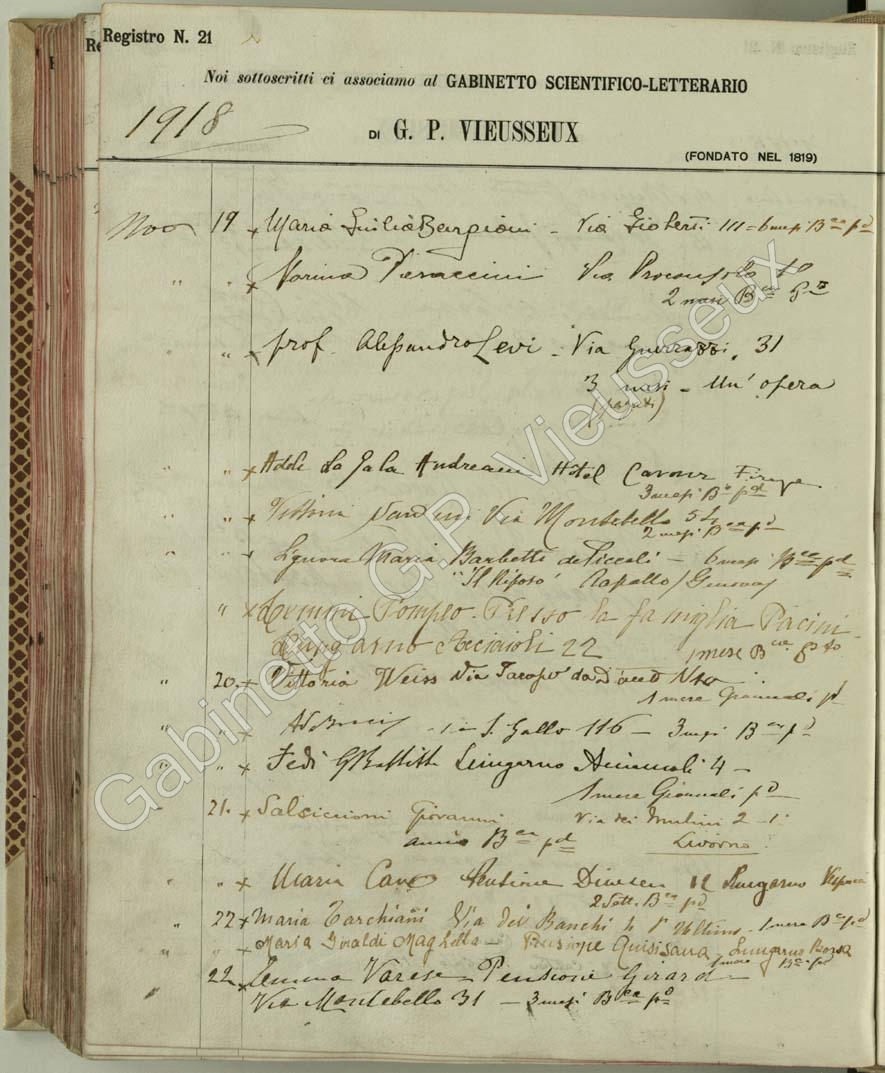 Registro N. 21
Noi sottoscritti ci associamo al GABINETTO SCIENTIFICO-LETTERARIO
1918
DI G. P. VIEUSSEUX
(FONDATO NEL 1819)
Nov 19 x Maria Giulia Bargioni - Via Gioberti 111 = 6 mesi Bca pd
" " x Peraccini Via Proconsolo 10
2 mesi Bca
" " x prof. Alessandro Levi - Via Guerrazzi, 31
3 mesi - Un' opera
" " x Adele La Jala Andreani Hôtel Cavour Firenze
3 mesi Bca pd
" " x Via Montebello 54
2 mesi Bca pd
" " x Signora Maria Barbetti de Piccoli - 6 mesi Bca pd
"Il Riposo" Rapallo (Genova)
" x Pompeo Presso la famiglia Pacini
Lungarno Acciaioli 22 1 mese Bca
" 20. x Vittoria Weiss Via Jacopo da Diacceto
1 mese Giornali pd
" " x Via S. Gallo 116 - 3 mesi Bca pd
" " x Fedi GBattista Lungarno Acciaiuoli 4 -
1 mese Giornali pd
21. x Salsiccioni Giovanni Via dei Mulini 2 - 1°
anno Bca pd Livorno
" " x Maria Pensione Dinesen 12 Lungarno Vespucci
2 Sett. Bca pd
" 22 x Maria Tarchiani Via dei Banchi 4 - 1 mese Bca pd
" " x Maria Magliotta - Pensione Quisisana, Lungarno
1 mese Bca pd
22 x Gemma Varese - Pensione Girard -
Via Montebello 31 - 3 mesi Bca pd
Gabinetto G.P. Vieusseux